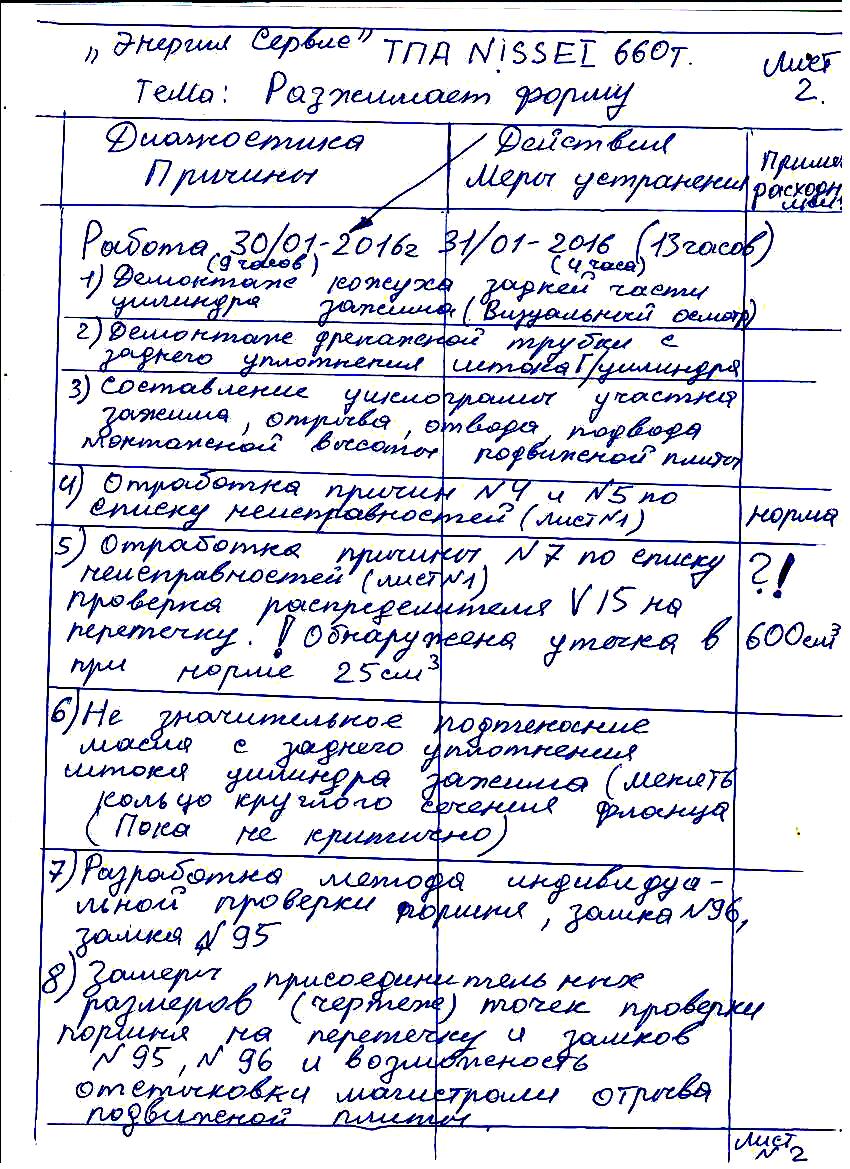 „Энергия Сервис" ТПА NISSEI 660т.
Лист
2.
Тема: Разжимает форму
Диагностика
Причины
Действия
Меры устранения
Приме
расходн
мат
Работа 30/01-2016г 31/01-2016 (13 часов)
(9 часов) (4 часа)
1) Демонтаж кожуха задней части
цилиндра зажима (Визуальный осмотр)
2) Демонтаж дренажной трубки с
заднего уплотнения штока Г/цилиндра
3) Составление циклограмы участка
зажима, отрыва, отвода, подвода
монтажной высоты подвижной плиты
4) Отработка причин N4 и N5 по
списку неисправностей (лист N1)
норма
5) Отработка причины N7 по списку
неисправностей (лист N1)
?!
проверка распределителя V15 на
перетечку. ! Обнаружена утечка в
600см³
при норме 25см³
6) Не значительное подтекание
масла с заднего уплотнения
штока цилиндра зажима (менять
кольцо круглого сечения фланца
(Пока не критично)
7) Разработка метода индивидуа-
льной проверки поршня, замка N96,
замка N95
8) Замеры присоединительных
размеров (чертеж) точек проверки
поршня на перетечку и замков
N95, N96 и возможность
отстыковки магистрали отрыва
подвижной плиты.
Лист
N2